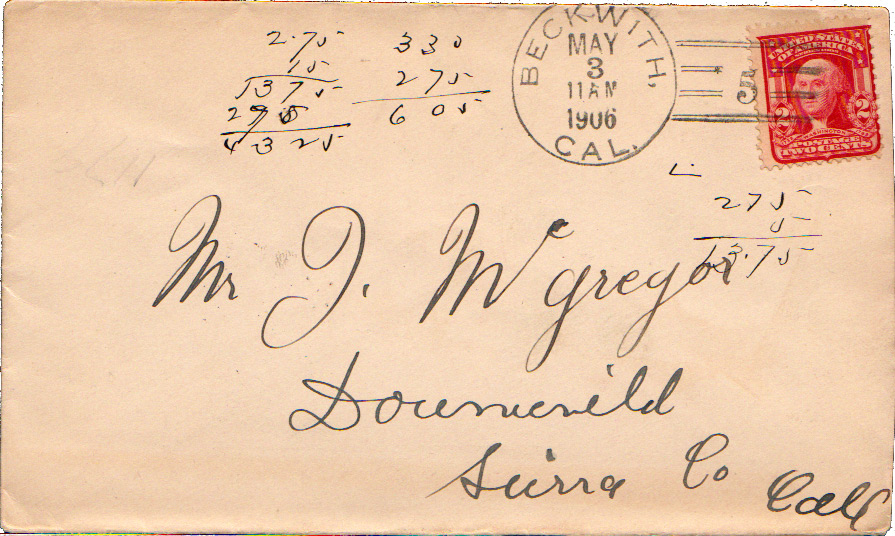 2.75
15
1375
275
4325
330
275
605
BECKWITH,
MAY
3
11 AM
1906
CAL.
5
UNITED STATES
OF AMERICA
2 2
WASHINGTON
POSTAGE
TWO CENTS
275
5
13.75
Mr J. McGregor
Downievild
Sierra Co
Calf